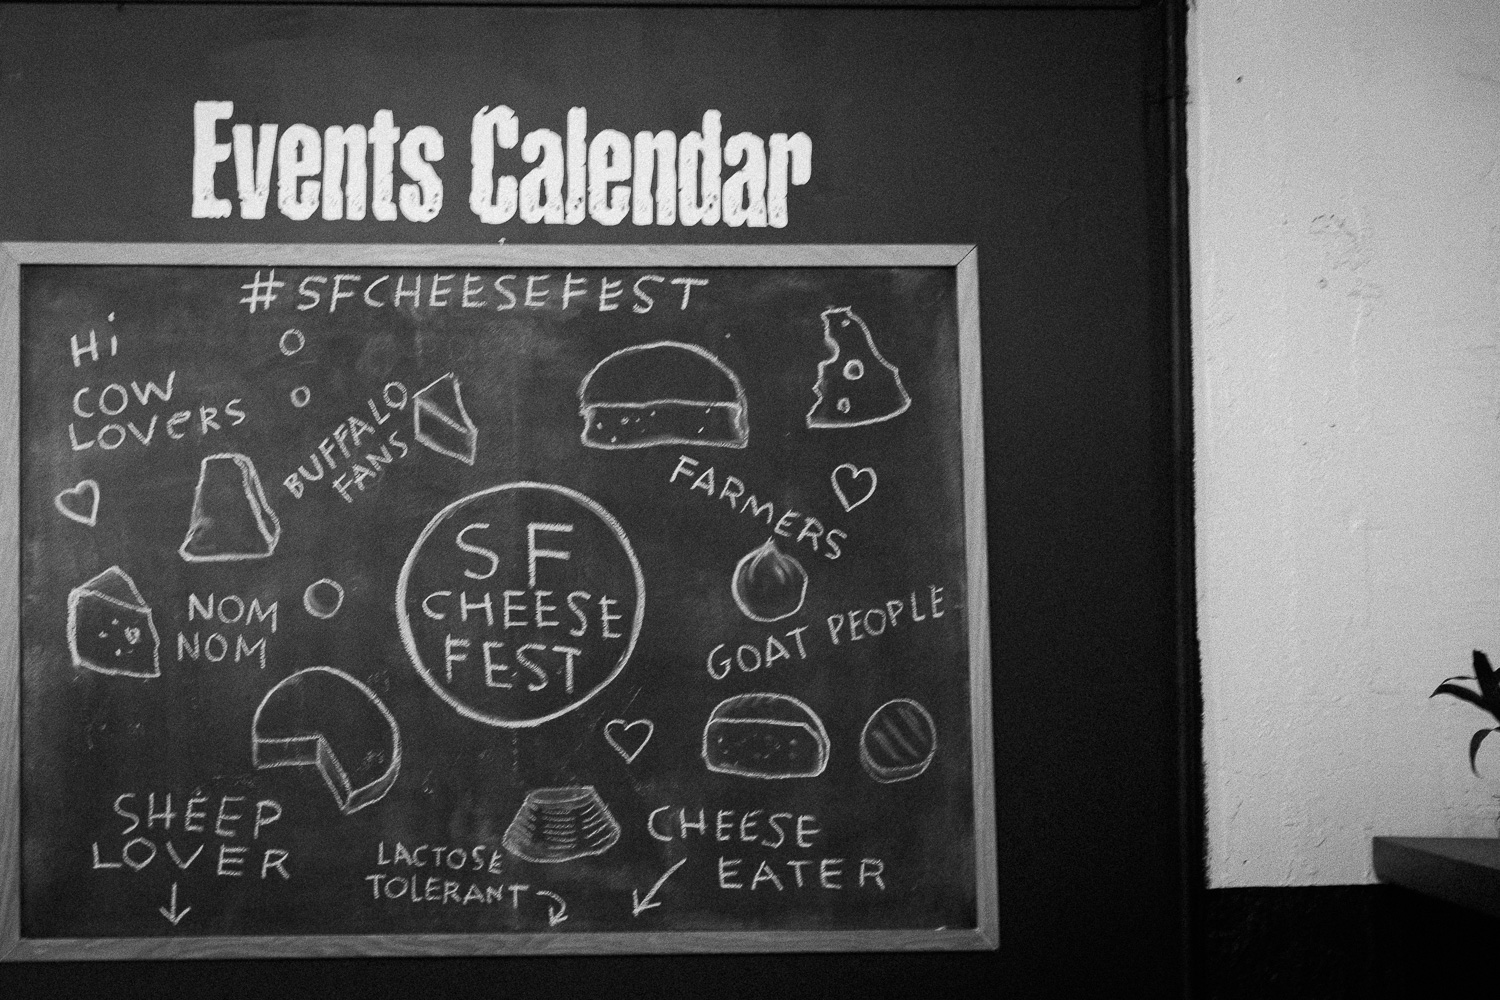 Events Calendar
#SFCHEESEFEST
Hi
COW
LOVERS
BUFFALO
FANS
FARMERS
SF
CHEESE
FEST
NOM
NOM
GOAT PEOPLE
SHEEP
LOVER
LACTOSE
TOLERANT
CHEESE
EATER